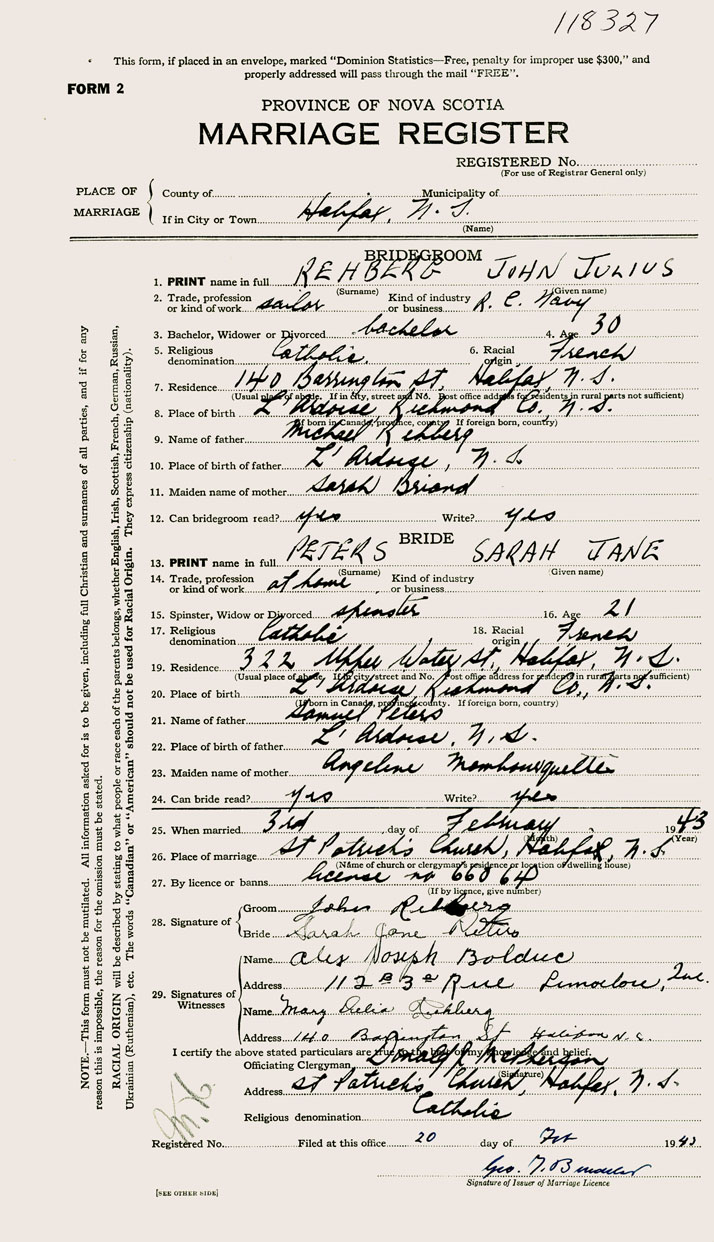 118327
This form, if placed in an envelope, marked "Dominion Statistics—Free, penalty for improper use $300," and
properly addressed will pass through the mail "FREE".
FORM 2
PROVINCE OF NOVA SCOTIA
MARRIAGE REGISTER
REGISTERED No.
(For use of Registrar General only)
PLACE OF MARRIAGE
County of Municipality of
If in City or Town Halifax, N. S.
(Name)
BRIDEGROOM
1. PRINT name in full REHBERG JOHN JULIUS
(Surname) (Given name)
2. Trade, profession or kind of work sailor Kind of industry or business R. C. Navy
3. Bachelor, Widower or Divorced bachelor 4. Age 30
5. Religious denomination Catholic. 6. Racial origin French
7. Residence 140 Barrington St. Halifax, N. S.
(Usual place of abode. If in city, street and No. Post office address for residents in rural parts not sufficient)
8. Place of birth L'Ardoise, Richmond Co., N. S.
(If born in Canada, province, county. If foreign born, country)
9. Name of father Michael Rehberg
10. Place of birth of father L'Ardoise, N. S.
11. Maiden name of mother Sarah Briand
12. Can bridegroom read? yes Write? yes
BRIDE
13. PRINT name in full PETERS SARAH JANE
(Surname) (Given name)
14. Trade, profession or kind of work at home Kind of industry or business
15. Spinster, Widow or Divorced spinster 16. Age 21
17. Religious denomination Catholic 18. Racial origin French
19. Residence 322 Upper Water St., Halifax, N. S.
(Usual place of abode. If in city street and No. Post office address for residents in rural parts not sufficient)
20. Place of birth L'Ardoise, Richmond Co., N. S.
(If born in Canada, province, county. If foreign born, country)
21. Name of father Samuel Peters
22. Place of birth of father L'Ardoise, N. S.
23. Maiden name of mother Angeline Mombourquette
24. Can bride read? yes Write? yes
25. When married 3rd day of February 1943
(Month) (Year)
26. Place of marriage St Patrick's Church, Halifax, N. S.
(Name of church or clergyman's residence or location of dwelling house)
27. By licence or banns license no 66064
(If by licence, give number)
28. Signature of
Groom John Rehberg
Bride Sarah Jane Peters
29. Signatures of Witnesses
Name Alex Joseph Bolduc
Address 112 3e Rue Limoilou, Que.
Name Mary Delia Rehberg
Address 140 Barrington St Halifax N.S.
I certify the above stated particulars are true to the best of my knowledge and belief.
Officiating Clergyman Donald R. McPherson
(Signature)
Address St Patrick's Church, Halifax, N. S.
Religious denomination Catholic
Registered No. Filed at this office 20 day of Feb 1943
Geo.
Signature of Issuer of Marriage Licence
[SEE OTHER SIDE]
NOTE.—This form must not be mutilated. All information asked for is to be given, including full Christian and surnames of all parties, and if for any
reason this is impossible, the reason for the omission must be stated.
RACIAL ORIGIN will be described by stating to what people or race each of the parents belongs, whether English, Irish, Scottish, French, German, Russian,
Ukrainian (Ruthenian), etc. The words "Canadian" or "American" should not be used for Racial Origin. They express citizenship (nationality).